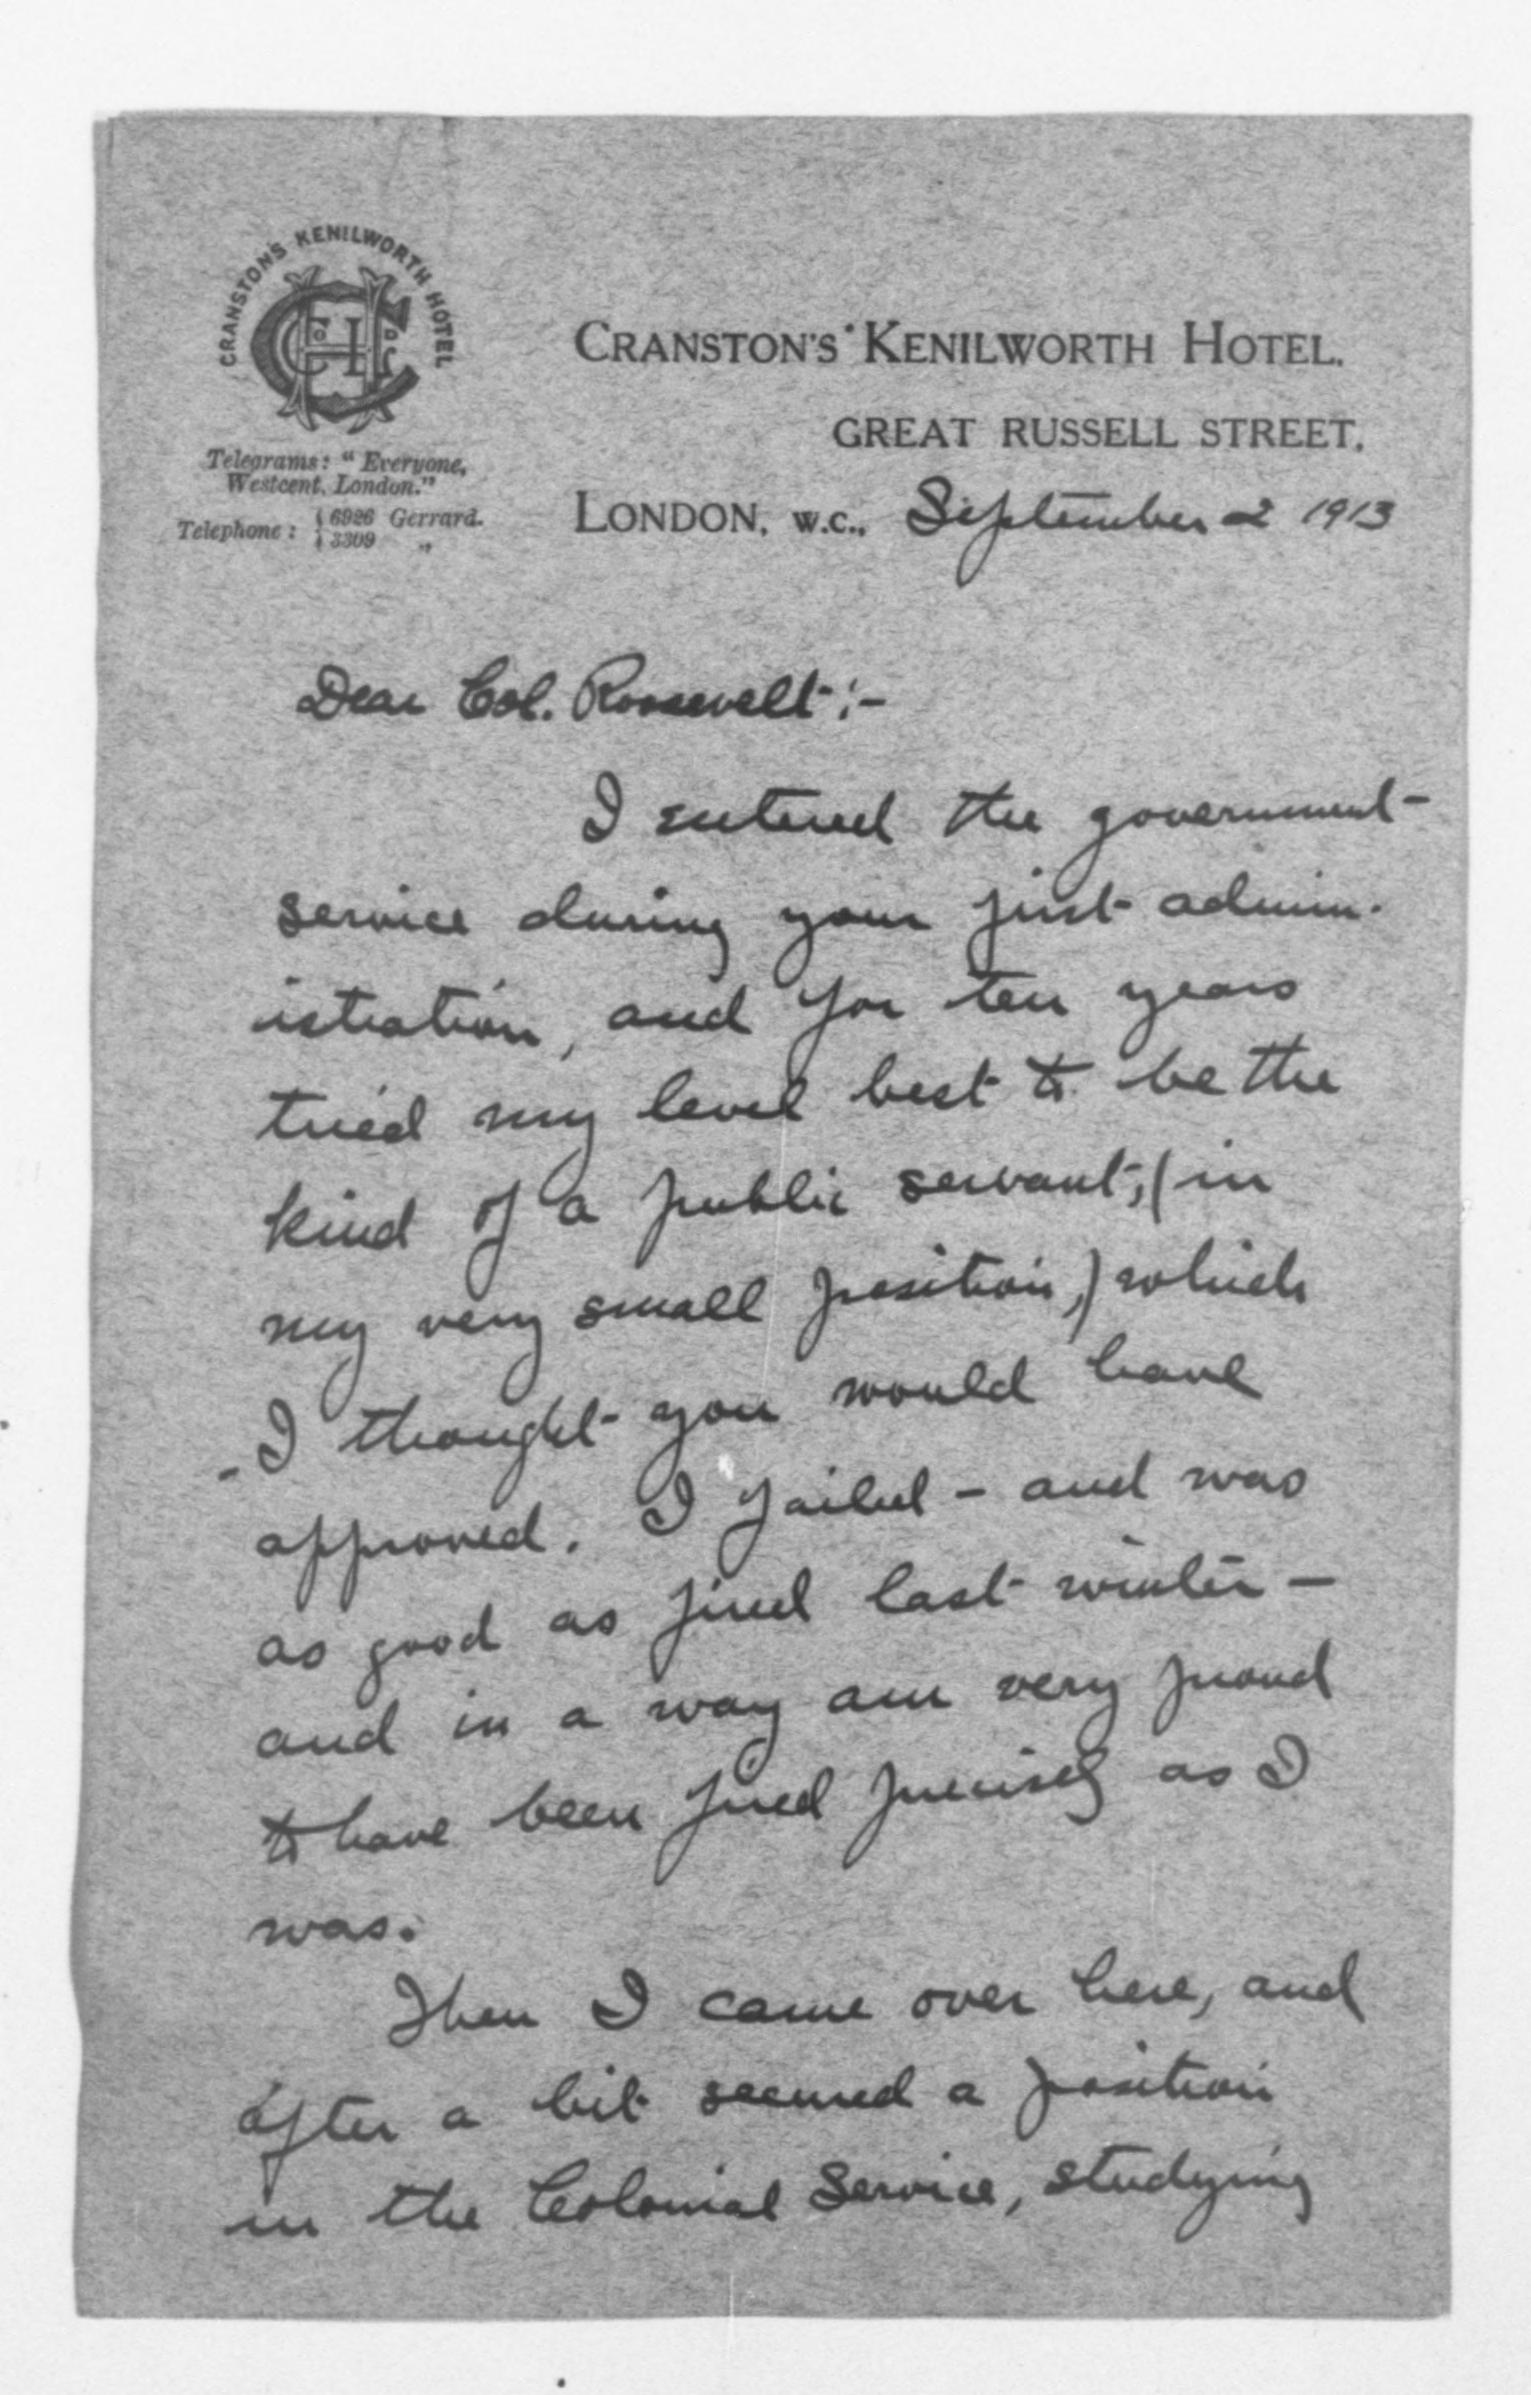 CRANSTON'S KENILWORTH HOTEL
CHL
CRANSTON'S KENILWORTH HOTEL.
GREAT RUSSELL STREET,
Telegrams: "Everyone,
Westcent, London."
Telephone: { 6926 Gerrard.
{ 3309 "
LONDON, W.C., September 2 1913
Dear Col. Roosevelt:-
I entered the government
service during your first admin-
istration, and for ten years
tried my level best to be the
kind of a public servant, (in
my very small position,) which
- I thought you would have
approved. I failed - and was
as good as fired last winter -
and in a way am very proud
to have been fired precisely as I
was.
Then I came over here, and
after a bit secured a position
in the Colonial Service, studying